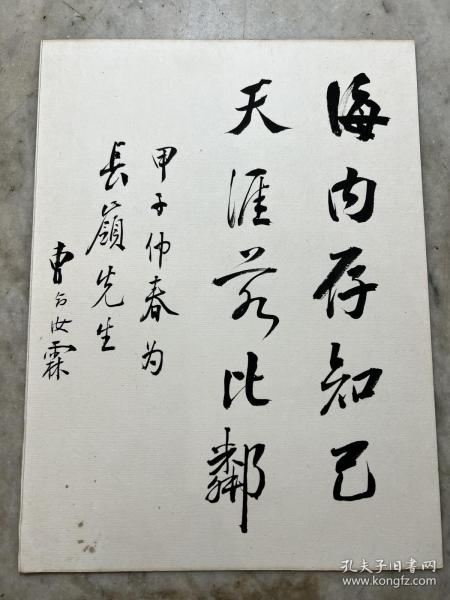 海内存知己
天涯若比鄰
甲子仲春为
長嶺先生
曹汝霖
孔夫子旧书网
www.kongfz.com